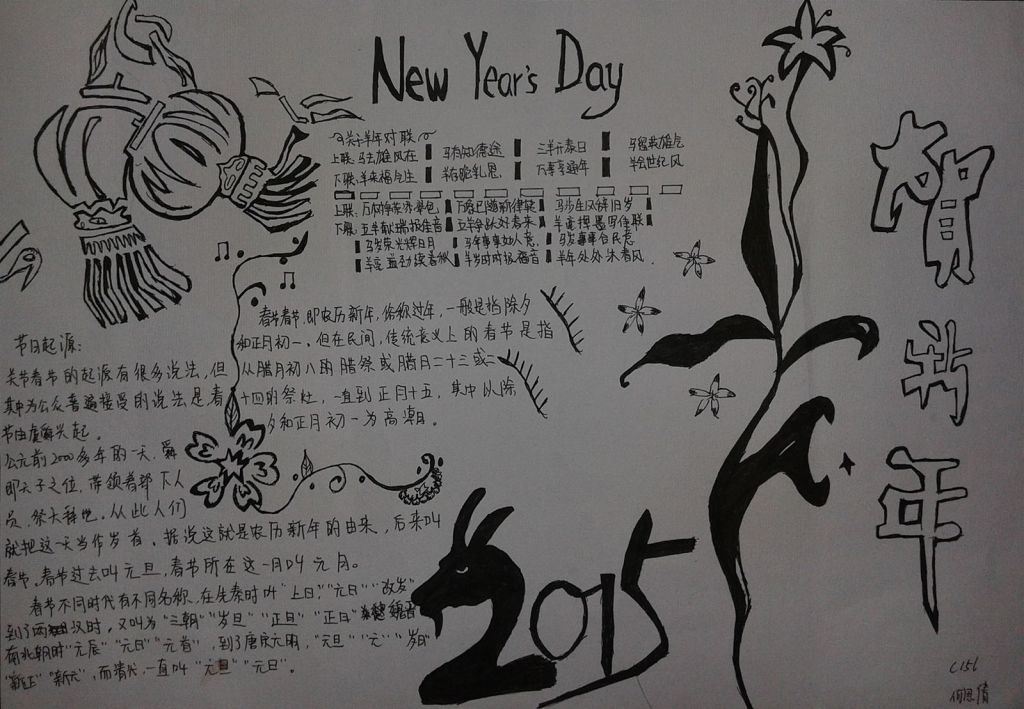 New Year's Day
关于羊年对联
上联:马去雄风在 马有知德途 三羊开泰日 马留英雄气
下联:羊来福气生 羊有跪乳恩 万事享通年 羊会世纪风
上联:万 万象已随新律转 马步生风辞旧岁
下联:五羊献瑞报佳音 五羊争跃好春来 羊毫挥墨写佳联
马发荣光辉日月 马年事事如人意
羊岁时时报福音 羊年处处沐春风
春节春节,即农历新年,俗称过年,一般是指除夕
和正月初一,但在民间,传统意义上的春节是指
从腊月初八的腊祭或腊月二十三或二
十四的祭灶,一直到正月十五,其中以除
夕和正月初一为高潮。
节日起源:
关节春节的起源有很多说法,但
其中为公众普遍接受的说法是春
节由虞舜兴起。
公元前2000多年的一天,舜
即天子之位,带领着部下人
员,祭天拜地。从此人们
就把这一天当作岁首,据说这就是农历新年的由来,后来叫
春节,春节过去叫元旦,春节所在这一月叫元月。
春节不同时代有不同名称,在先秦时叫"上日""元日""改岁"
到了两汉时,又叫为"三朝""岁旦""正旦""正日"魏晋
南北朝时"元辰""元日""元首",到了唐宋元明,"元旦""元""岁日"
"新正""新元",而清代,一直叫"元旦""元日"。
贺羊年
2015
C156
何恩倩